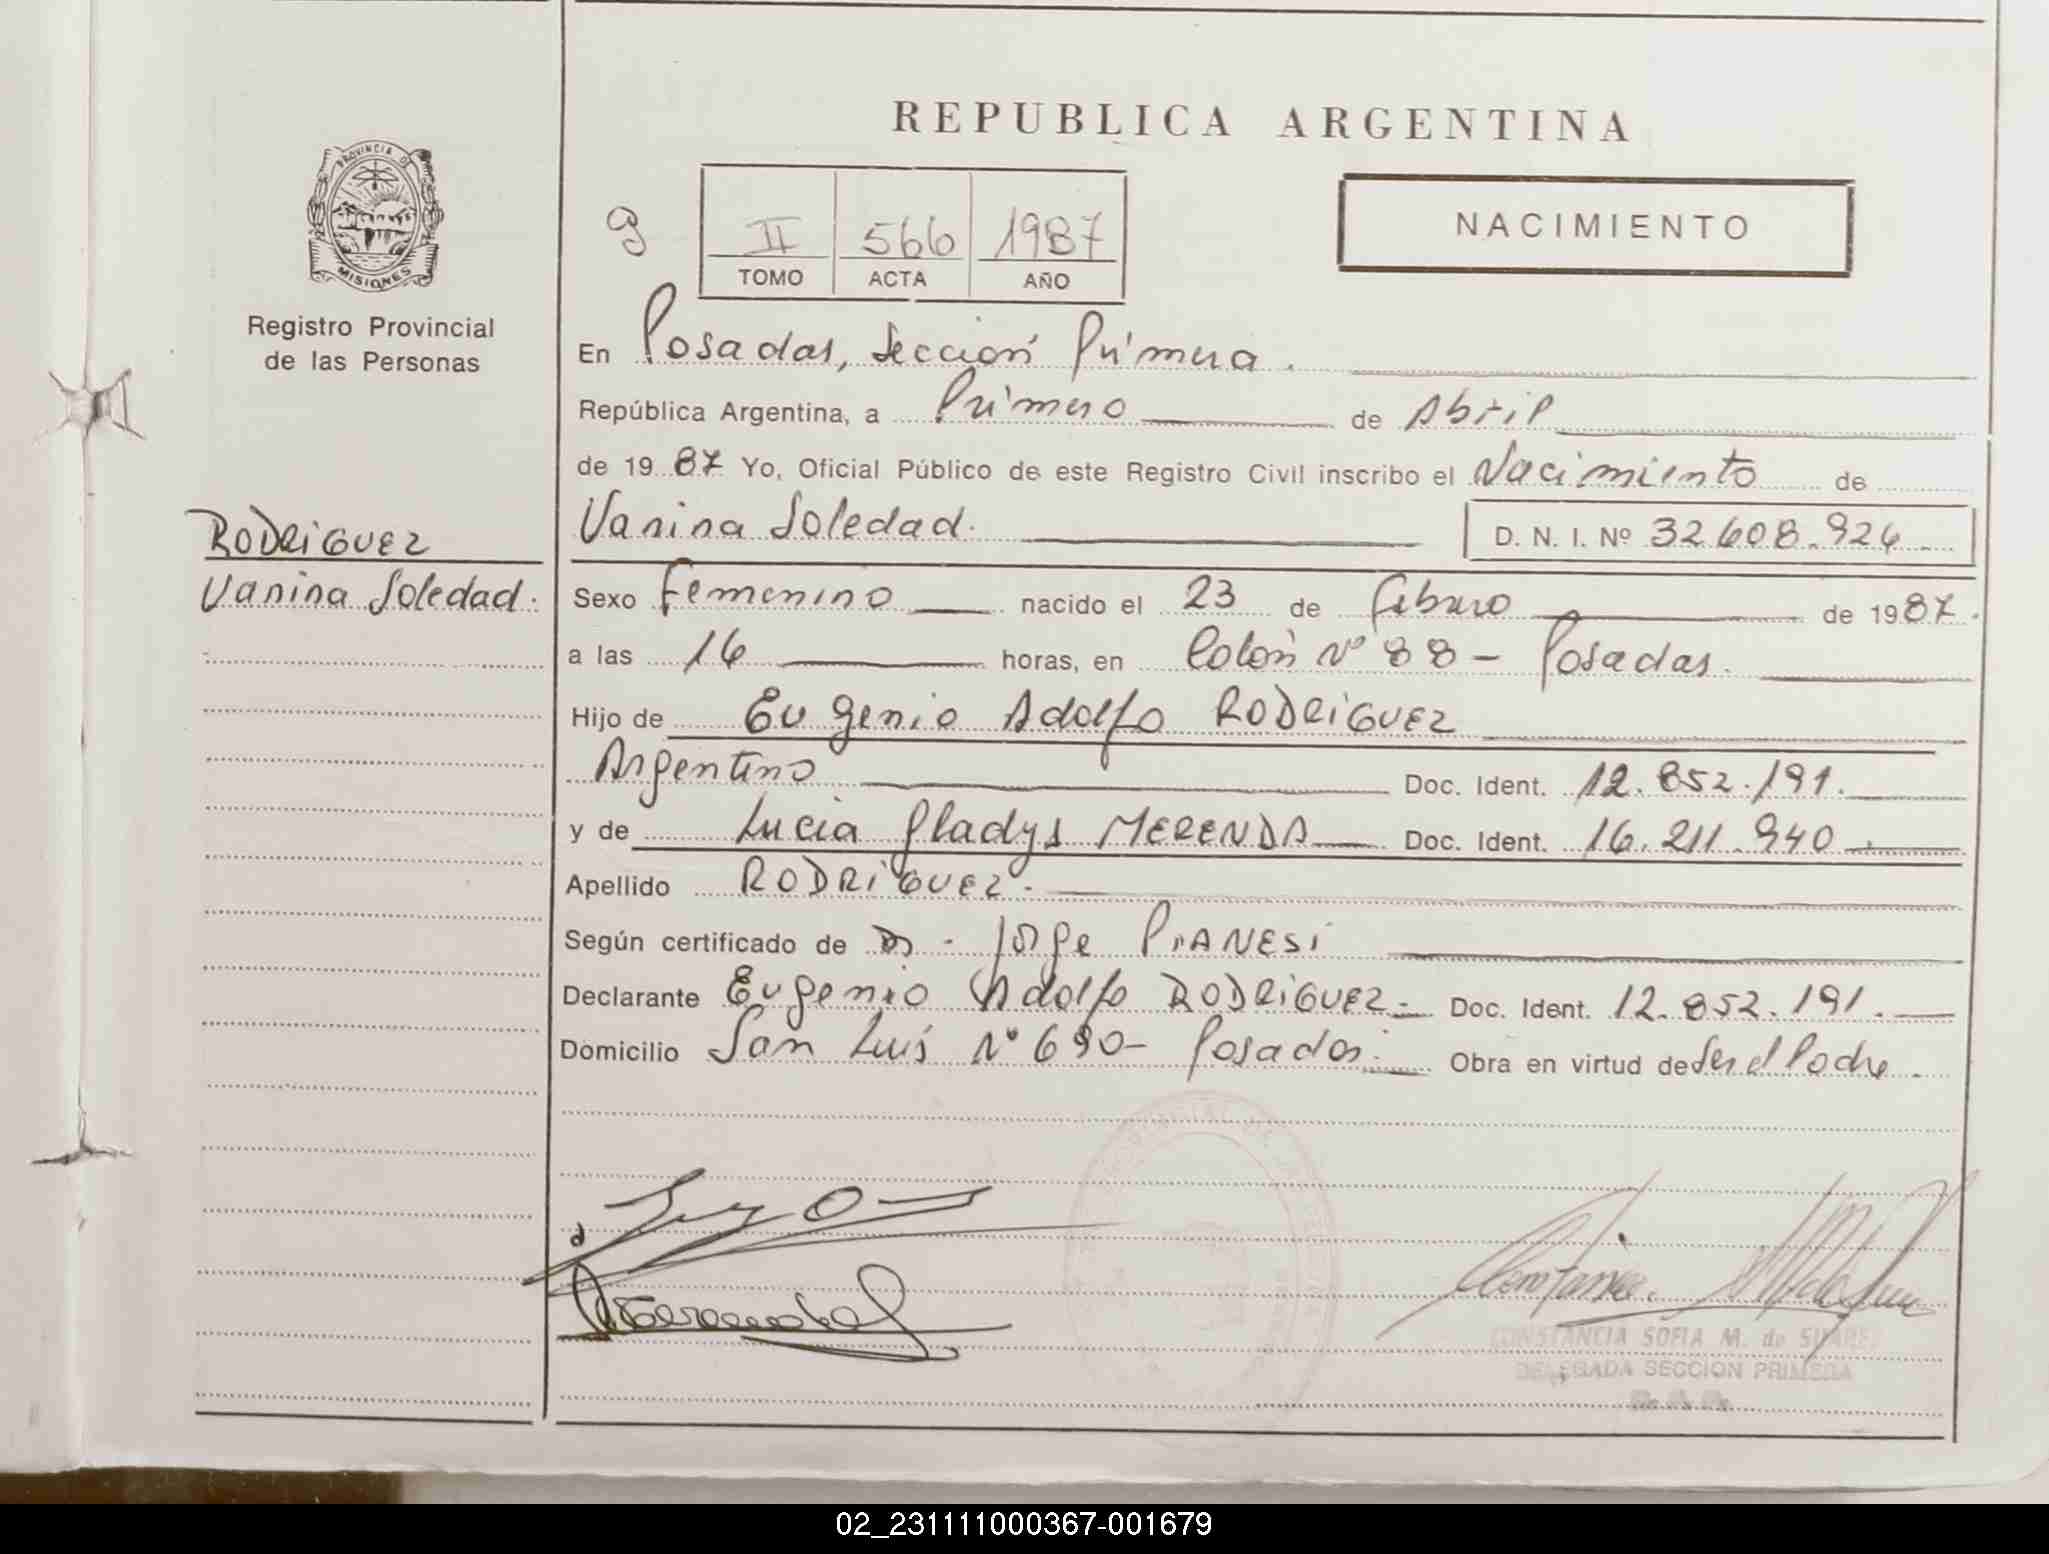 REPUBLICA ARGENTINA
PROVINCIA DE
MISIONES
Registro Provincial
de las Personas
II 566 1987
TOMO ACTA AÑO
NACIMIENTO
En Posadas, Sección Primera.
República Argentina, a Primero de Abril
de 1987 Yo, Oficial Público de este Registro Civil inscribo el Nacimiento de
Vanina Soledad. D. N. I. Nº 32.608.924
RODRIGUEZ
Vanina Soledad.
Sexo Femenino nacido el 23 de febrero de 1987.
a las 16 horas, en Colón Nº 88 - Posadas.
Hijo de Eugenio Adolfo RODRIGUEZ
Argentino Doc. Ident. 12.852.191.
y de Lucia Gladys MERENDA Doc. Ident. 16.211.940
Apellido RODRIGUEZ.
Según certificado de Dr. Jorge PIANESI
Declarante Eugenio Adolfo RODRIGUEZ- Doc. Ident. 12.852.191.
Domicilio San Luis Nº 690- Posadas. Obra en virtud de Ser el Padre.
CONSTANCIA SOFIA M. de SUAREZ
DELEGADA SECCION PRIMERA
02_231111000367-001679